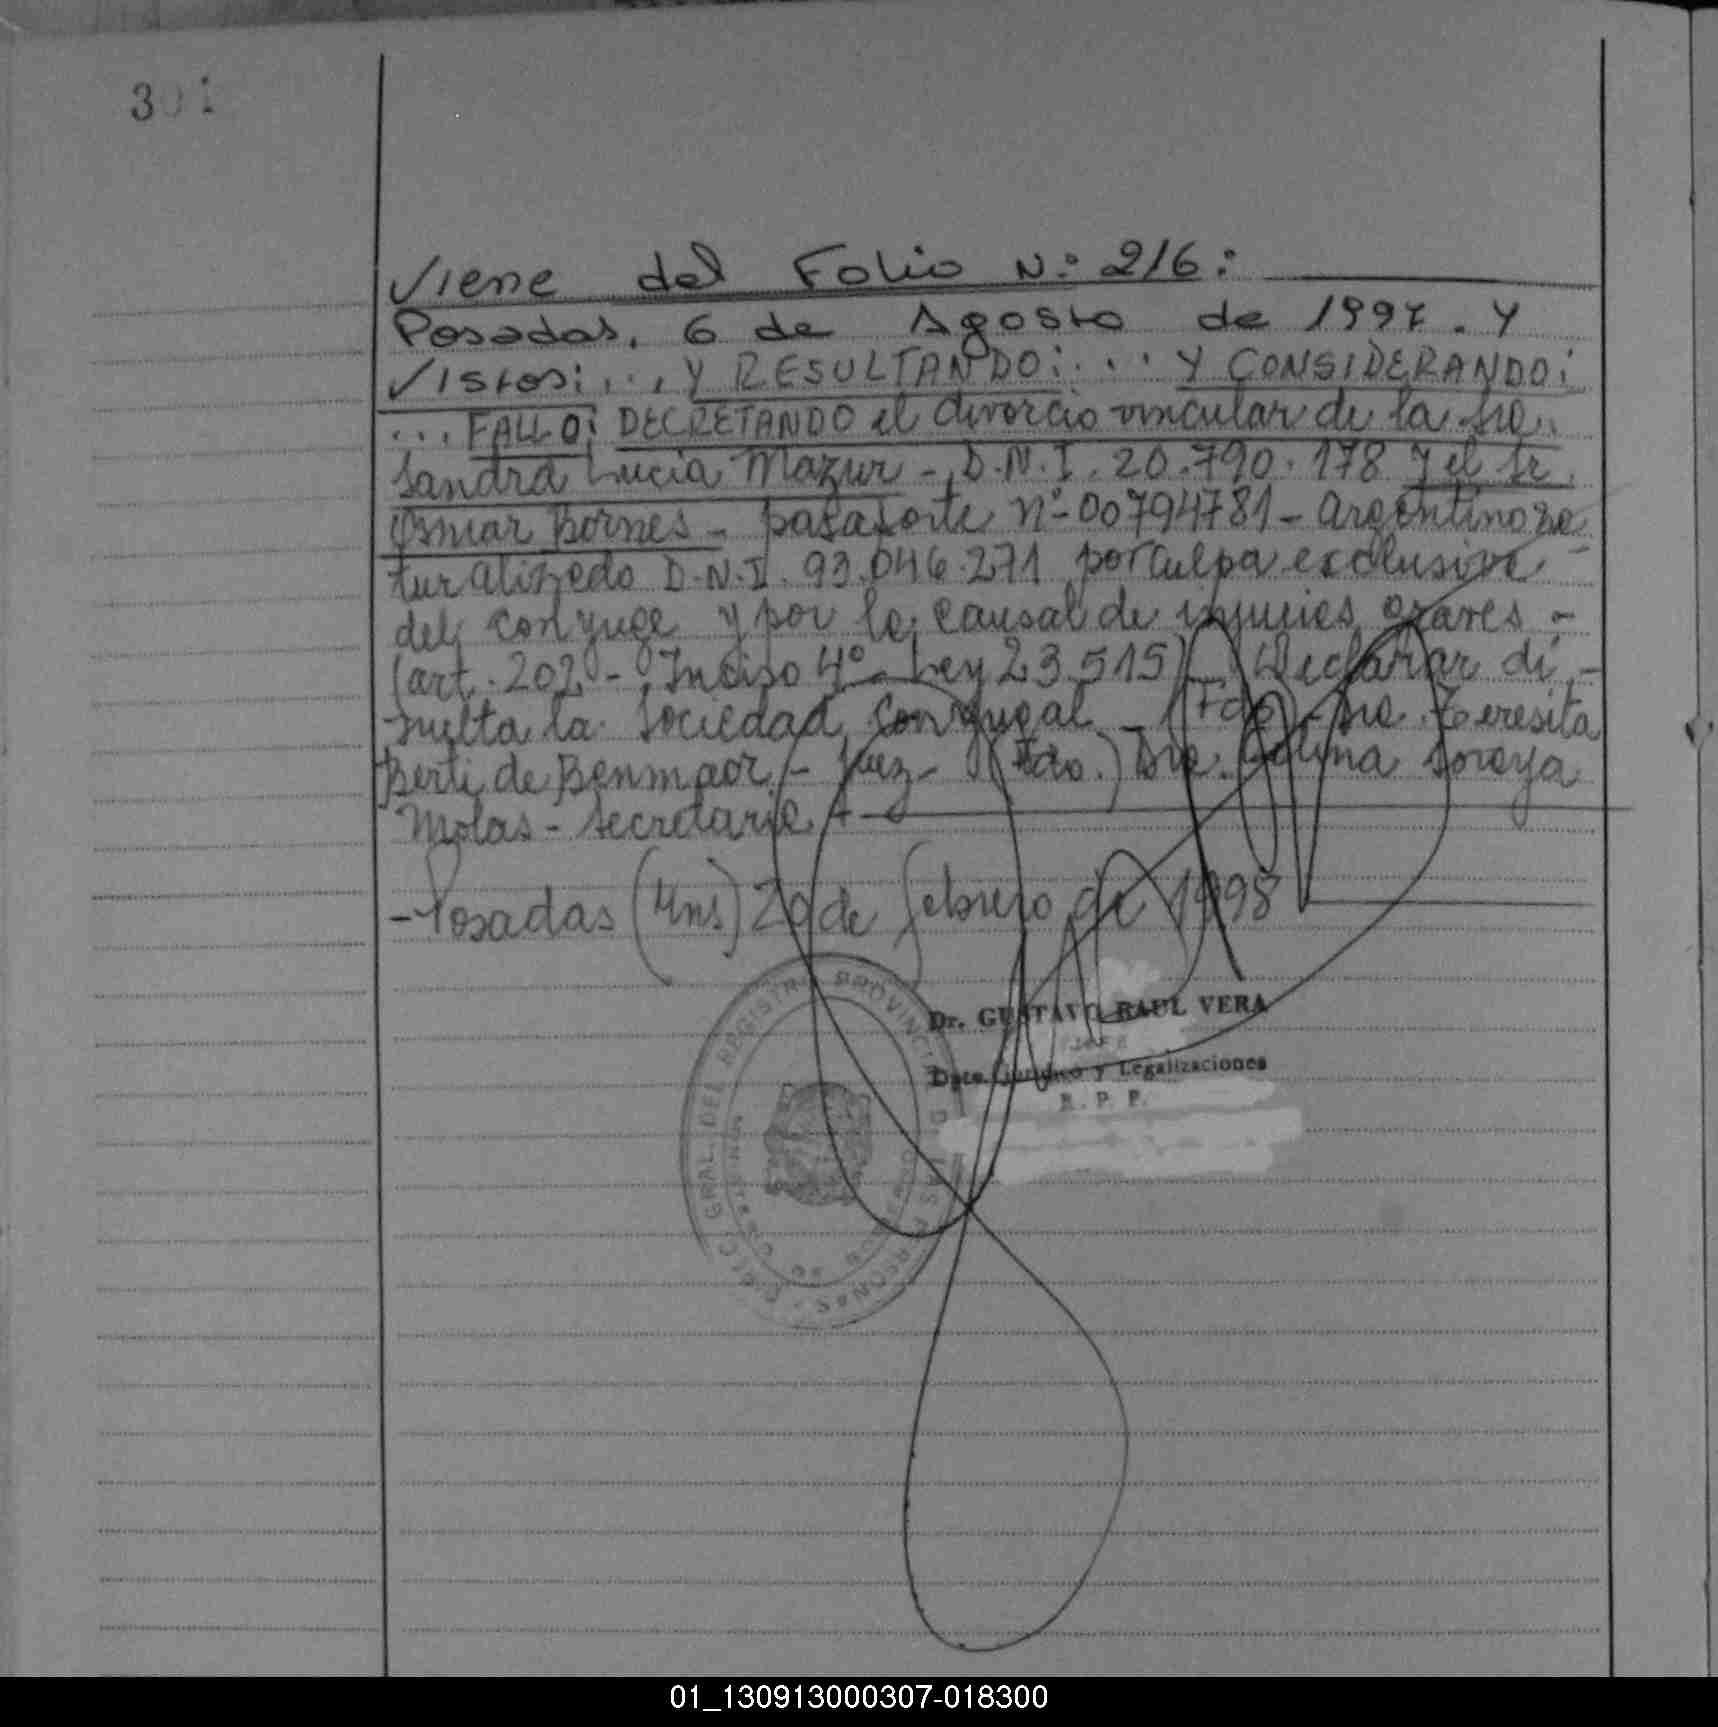 301
Viene del Folio Nº 216:
Posadas, 6 de Agosto de 1997. Y
Vistos: ... Y RESULTANDO: ... Y CONSIDERANDO:
... FALLO: DECRETANDO el divorcio vincular de la Sra.
Sandra Lucia Mazur - D.N.I. 20.790.178 y el Sr.
Osmar Bornes - pasaporte nº 00794781 - Argentino na
turalizado D.N.I. 93.046.271 por culpa exclusiva
del conyuge y por la causal de injurias graves -
(art. 202 - Inciso 4º - Ley 23.515) - Declarar di -
suelta la Sociedad Conyugal - (Fdo) - Dra. Teresita
Berti de Benmaor - Juez - (Fdo.) Dra. Soraya
Molas - Secretaria -
- Posadas (Mns) 20 de febrero de 1998
Dr. GUSTAVO RAUL VERA
JEFE
Dpto. Jurídico y Legalizaciones
R. P. P.
GRAL. DEL REGISTRO PROVINCIAL DE LAS PERSONAS
01_130913000307-018300